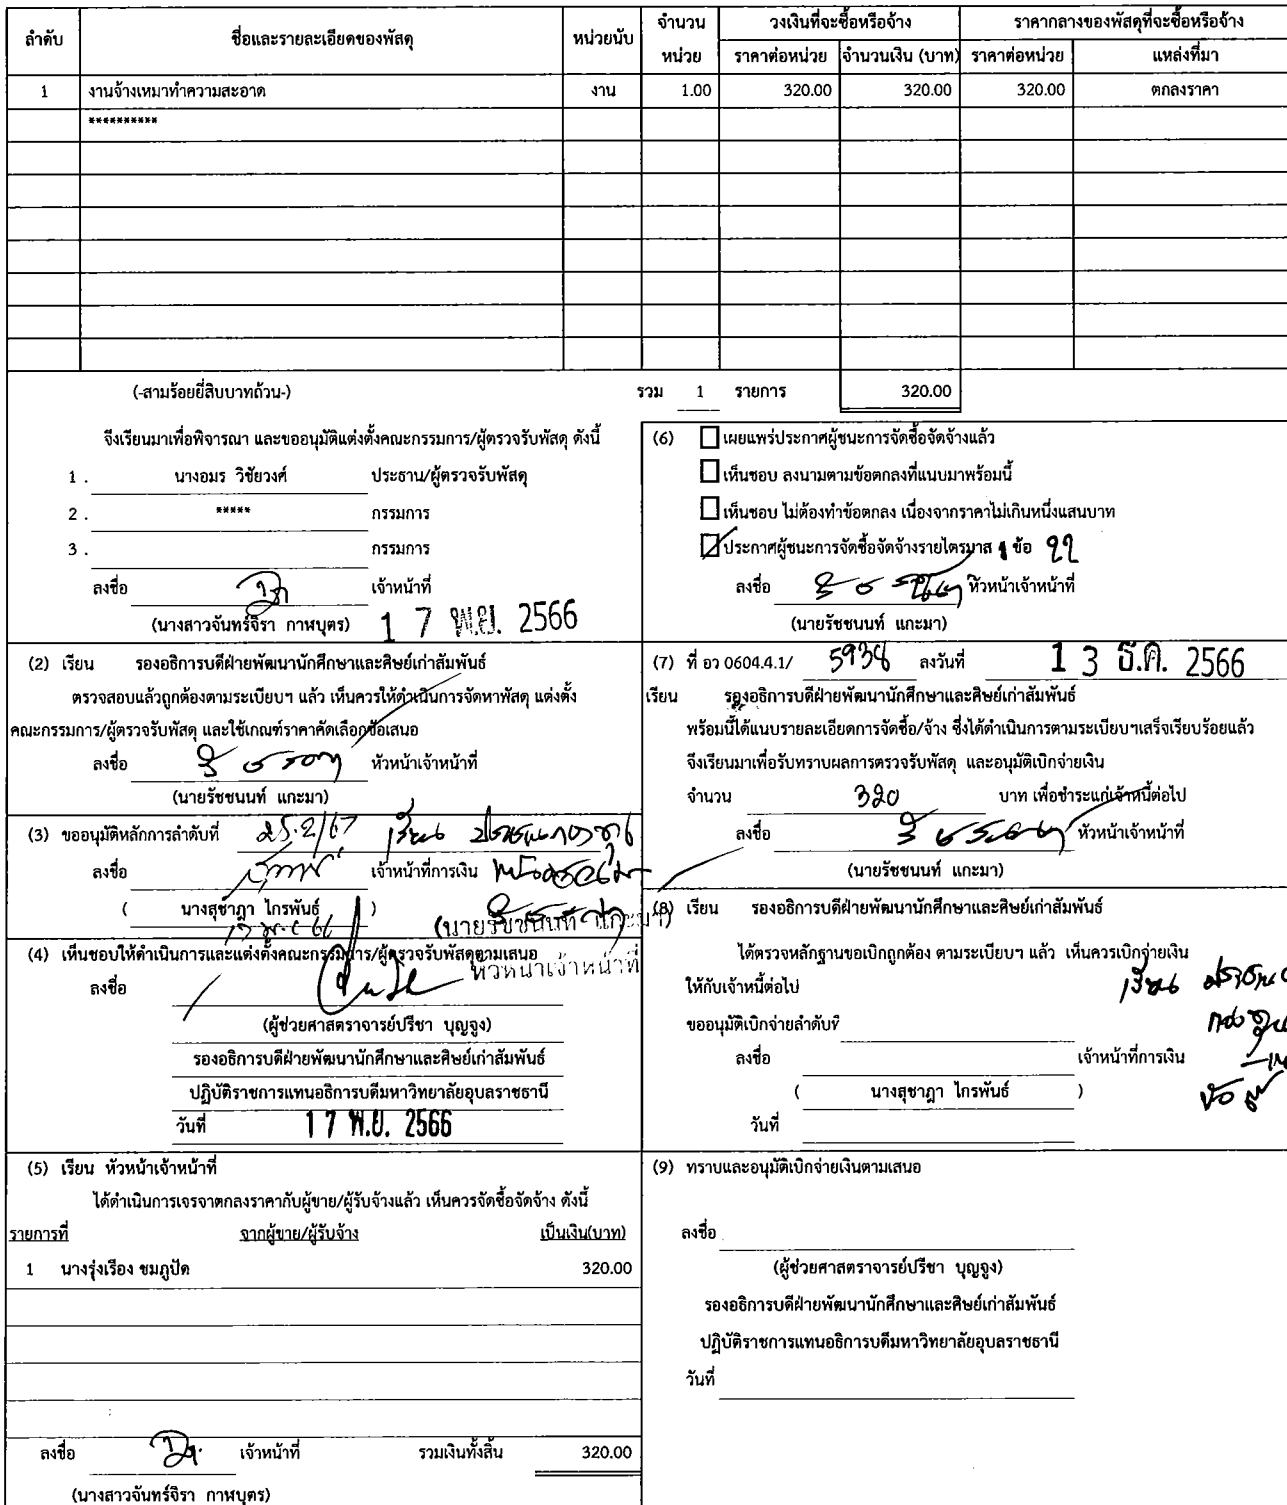 ลำดับ ชื่อและรายละเอียดของพัสดุ หน่วยนับ จำนวนหน่วย วงเงินที่จะซื้อหรือจ้าง ราคากลางของพัสดุที่จะซื้อหรือจ้าง
ราคาต่อหน่วย จำนวนเงิน (บาท) ราคาต่อหน่วย แหล่งที่มา
1 งานจ้างเหมาทำความสะอาด งาน 1.00 320.00 320.00 320.00 ตกลงราคา
**********
(-สามร้อยยี่สิบบาทถ้วน-) รวม 1 รายการ 320.00
จึงเรียนมาเพื่อพิจารณา และขออนุมัติแต่งตั้งคณะกรรมการ/ผู้ตรวจรับพัสดุ ดังนี้
1 . นางอมร วิชัยวงศ์ ประธาน/ผู้ตรวจรับพัสดุ
2 . ***** กรรมการ
3 . กรรมการ
ลงชื่อ เจ้าหน้าที่
(นางสาวจันทร์จิรา กาฬบุตร) 1 7 พ.ย. 2566
(2) เรียน รองอธิการบดีฝ่ายพัฒนานักศึกษาและศิษย์เก่าสัมพันธ์
ตรวจสอบแล้วถูกต้องตามระเบียบฯ แล้ว เห็นควรให้ดำเนินการจัดหาพัสดุ แต่งตั้ง
คณะกรรมการ/ผู้ตรวจรับพัสดุ และใช้เกณฑ์ราคาคัดเลือกข้อเสนอ
ลงชื่อ หัวหน้าเจ้าหน้าที่
(นายรัชชนนท์ แกะมา)
(3) ขออนุมัติหลักการลำดับที่ 25.2/67 เรียน
ลงชื่อ เจ้าหน้าที่การเงิน
( นางสุชาฎา ไกรพันธ์ ) (นายรัชชนนท์ แกะมา)
(4) เห็นชอบให้ดำเนินการและแต่งตั้งคณะกรรมการ/ผู้ตรวจรับพัสดุตามเสนอ หัวหน้าเจ้าหน้าที่
ลงชื่อ
(ผู้ช่วยศาสตราจารย์ปรีชา บุญจูง)
รองอธิการบดีฝ่ายพัฒนานักศึกษาและศิษย์เก่าสัมพันธ์
ปฏิบัติราชการแทนอธิการบดีมหาวิทยาลัยอุบลราชธานี
วันที่ 1 7 พ.ย. 2566
(5) เรียน หัวหน้าเจ้าหน้าที่
ได้ดำเนินการเจรจาตกลงราคากับผู้ขาย/ผู้รับจ้างแล้ว เห็นควรจัดซื้อจัดจ้าง ดังนี้
รายการที่ จากผู้ขาย/ผู้รับจ้าง เป็นเงิน(บาท)
1 นางรุ่งเรือง ชมภูปัด 320.00
ลงชื่อ เจ้าหน้าที่ รวมเงินทั้งสิ้น 320.00
(นางสาวจันทร์จิรา กาฬบุตร)
(6) เผยแพร่ประกาศผู้ชนะการจัดซื้อจัดจ้างแล้ว
เห็นชอบ ลงนามตามข้อตกลงที่แนบมาพร้อมนี้
เห็นชอบ ไม่ต้องทำข้อตกลง เนื่องจากราคาไม่เกินหนึ่งแสนบาท
ประกาศผู้ชนะการจัดซื้อจัดจ้างรายไตรมาส 1 ข้อ 22
ลงชื่อ หัวหน้าเจ้าหน้าที่
(นายรัชชนนท์ แกะมา)
(7) ที่ อว 0604.4.1/ 5938 ลงวันที่ 1 3 ธ.ค. 2566
เรียน รองอธิการบดีฝ่ายพัฒนานักศึกษาและศิษย์เก่าสัมพันธ์
พร้อมนี้ได้แนบรายละเอียดการจัดซื้อ/จ้าง ซึ่งได้ดำเนินการตามระเบียบฯเสร็จเรียบร้อยแล้ว
จึงเรียนมาเพื่อรับทราบผลการตรวจรับพัสดุ และอนุมัติเบิกจ่ายเงิน
จำนวน 320 บาท เพื่อชำระแก่เจ้าหนี้ต่อไป
ลงชื่อ หัวหน้าเจ้าหน้าที่
(นายรัชชนนท์ แกะมา)
(8) เรียน รองอธิการบดีฝ่ายพัฒนานักศึกษาและศิษย์เก่าสัมพันธ์
ได้ตรวจหลักฐานขอเบิกถูกต้อง ตามระเบียบฯ แล้ว เห็นควรเบิกจ่ายเงิน
ให้กับเจ้าหนี้ต่อไป เรียน
ขออนุมัติเบิกจ่ายลำดับที่
ลงชื่อ เจ้าหน้าที่การเงิน
( นางสุชาฎา ไกรพันธ์ )
วันที่
(9) ทราบและอนุมัติเบิกจ่ายเงินตามเสนอ
ลงชื่อ
(ผู้ช่วยศาสตราจารย์ปรีชา บุญจูง)
รองอธิการบดีฝ่ายพัฒนานักศึกษาและศิษย์เก่าสัมพันธ์
ปฏิบัติราชการแทนอธิการบดีมหาวิทยาลัยอุบลราชธานี
วันที่